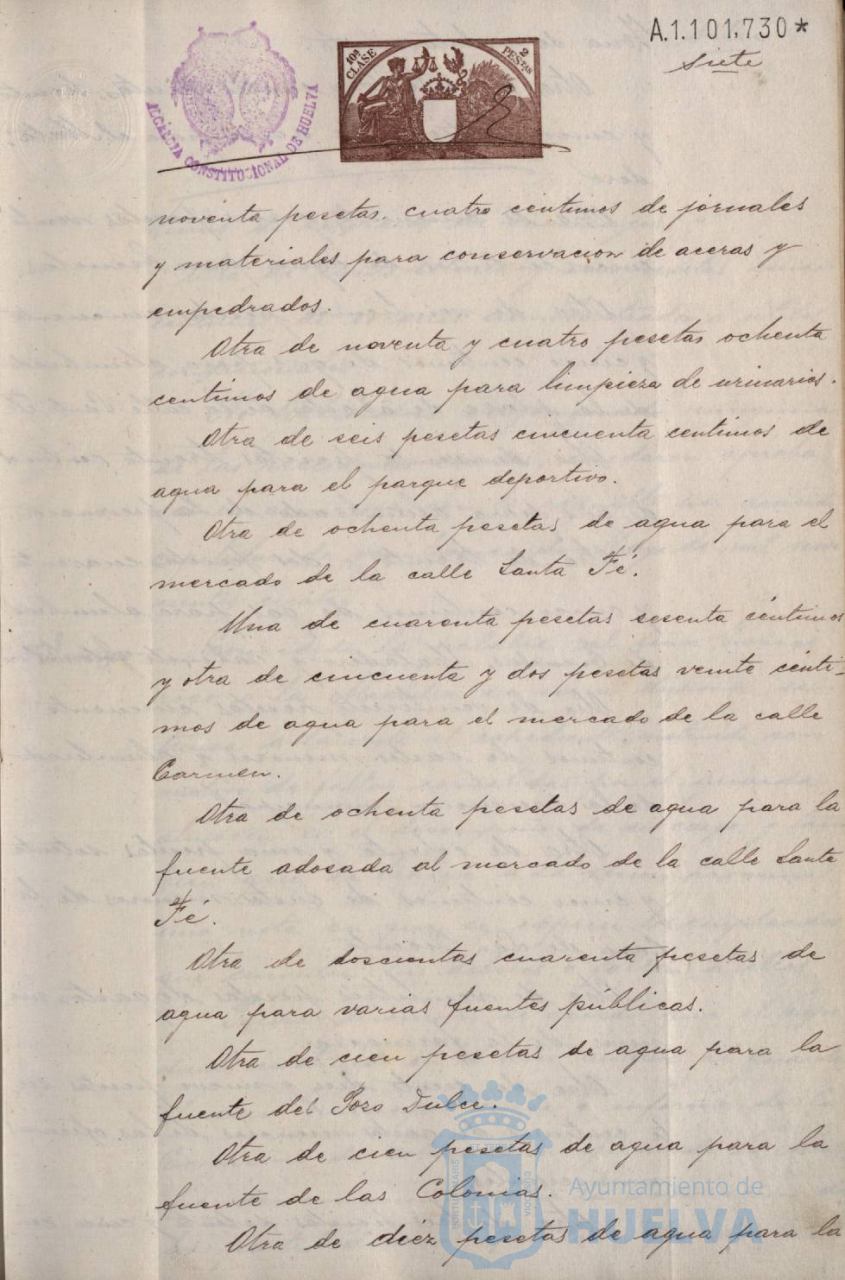 A.1.101.730*
siete
10ª CLASE
2 PESETAS
ALCALDIA CONSTITUCIONAL DE HUELVA
noventa pesetas. cuatro centimos de jornales
y materiales para conservacion de aceras y
empedrados.
Otra de noventa y cuatro pesetas ochenta
centimos de agua para limpieza de urinarios.
Otra de seis pesetas cincuenta centimos de
agua para el parque deportivo.
Otra de ochenta pesetas de agua para el
mercado de la calle Santa Fé.
Una de cuarenta pesetas sesenta céntimos
y otra de cincuenta y dos pesetas veinte cénti-
mos de agua para el mercado de la calle
Carmen.
Otra de ochenta pesetas de agua para la
fuente adosada al mercado de la calle Santa
Fé.
Otra de doscientas cuarenta pesetas de
agua para varias fuentes públicas.
Otra de cien pesetas de agua para la
fuente del Pozo Dulce.
Otra de cien pesetas de agua para la
fuente de las Colonias.
Otra de diez pesetas de agua para la
Ayuntamiento de
HUELVA